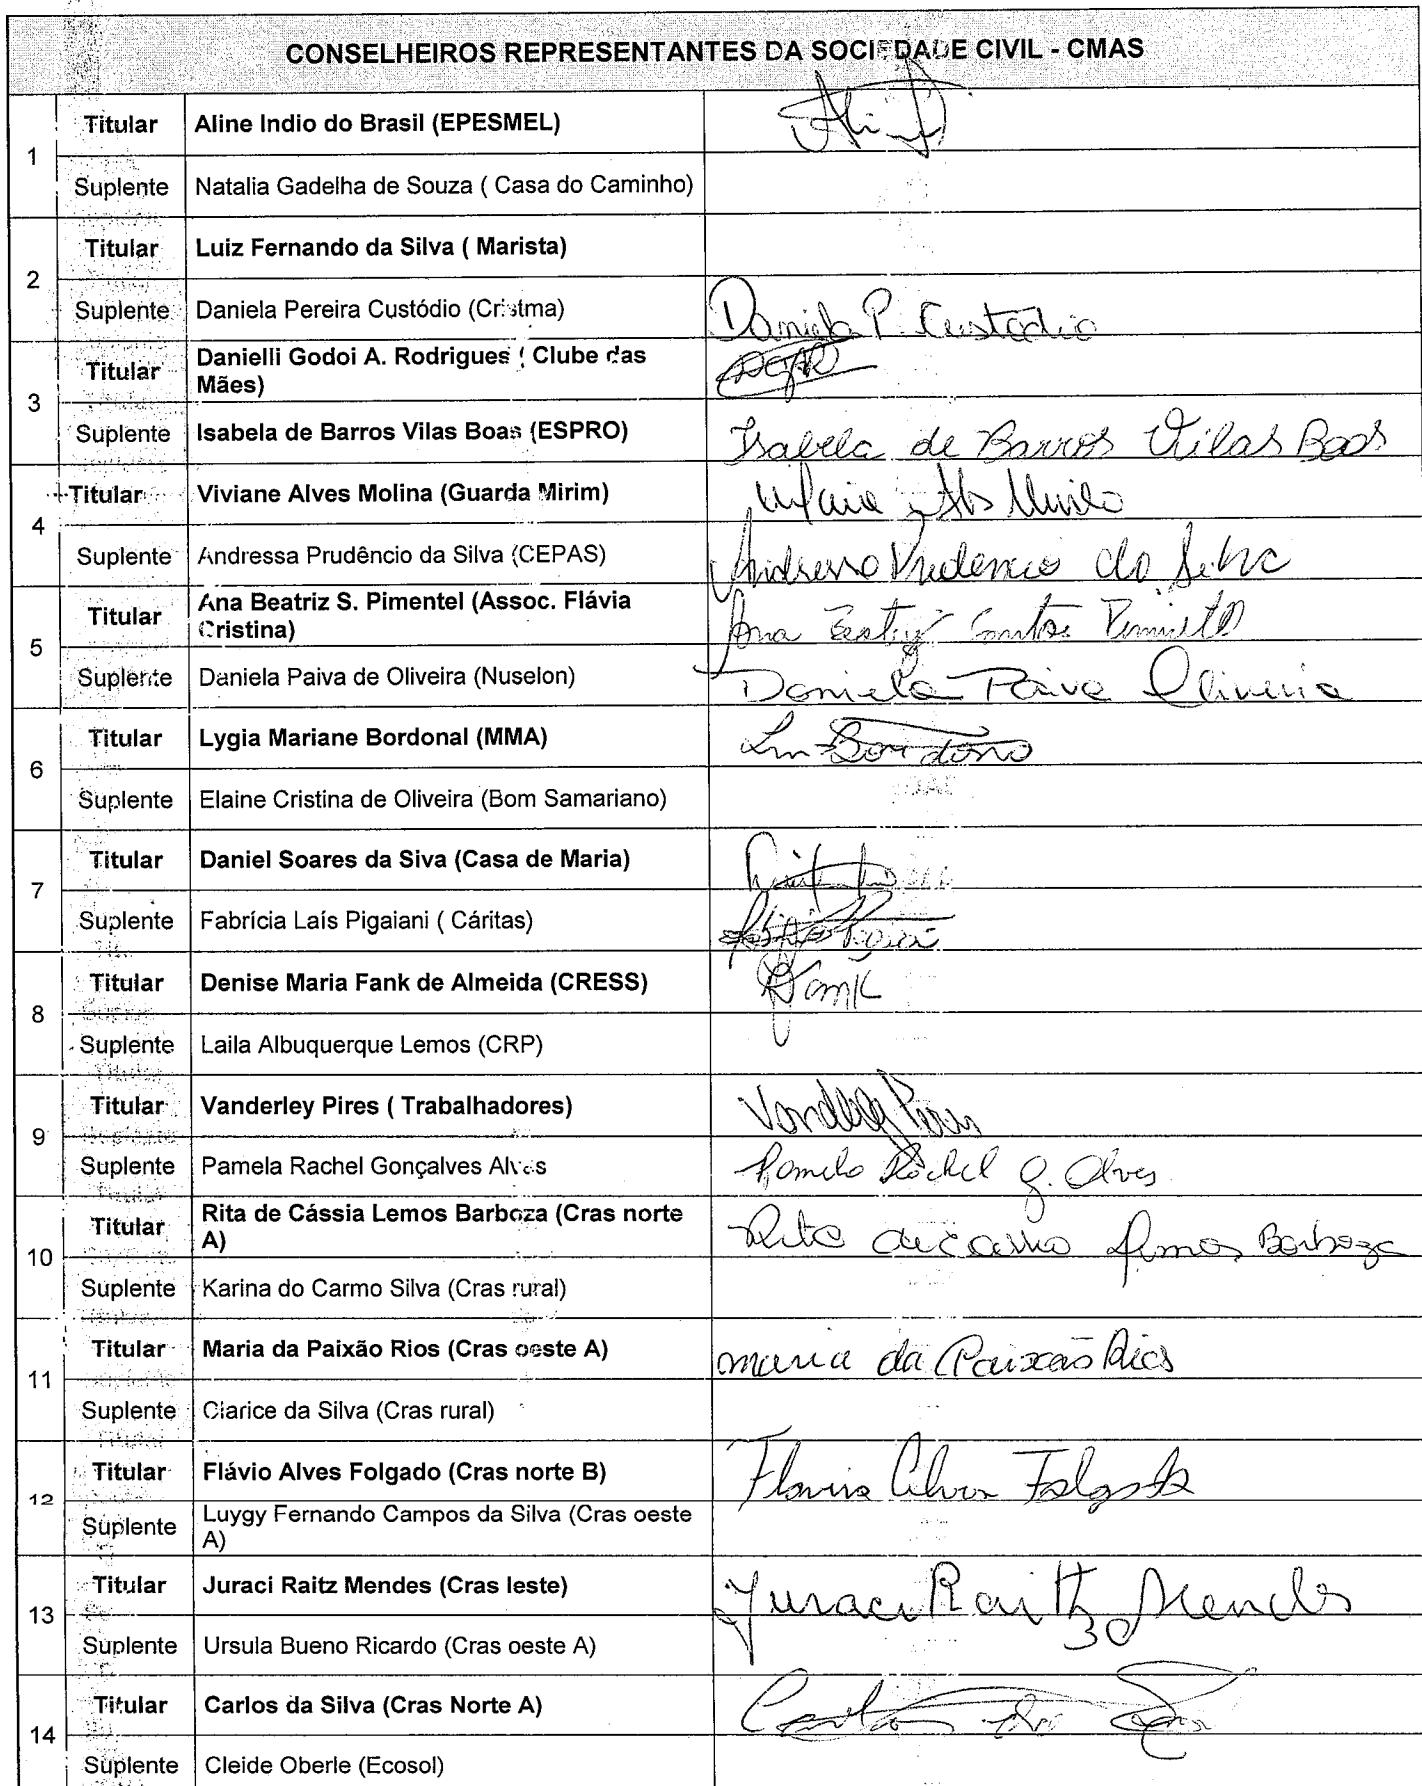 CONSELHEIROS REPRESENTANTES DA SOCIEDADE CIVIL - CMAS
1
Titular Aline Indio do Brasil (EPESMEL)
Suplente Natalia Gadelha de Souza ( Casa do Caminho)
2
Titular Luiz Fernando da Silva ( Marista)
Suplente Daniela Pereira Custódio (Cristma) Daniela P. Custódio
3
Titular Danielli Godoi A. Rodrigues ( Clube das
Mães)
Suplente Isabela de Barros Vilas Boas (ESPRO) Isabela de Barros Vilas Boas
4
Titular Viviane Alves Molina (Guarda Mirim)
Suplente Andressa Prudêncio da Silva (CEPAS) Andressa Prudencio da Silva
5
Titular Ana Beatriz S. Pimentel (Assoc. Flávia
Cristina) Ana Beatriz Santos Pimentel
Suplente Daniela Paiva de Oliveira (Nuselon) Daniela Paiva Oliveira
6
Titular Lygia Mariane Bordonal (MMA)
Suplente Elaine Cristina de Oliveira (Bom Samariano)
7
Titular Daniel Soares da Siva (Casa de Maria)
Suplente Fabrícia Laís Pigaiani ( Cáritas)
8
Titular Denise Maria Fank de Almeida (CRESS) DFank
Suplente Laila Albuquerque Lemos (CRP)
9
Titular Vanderley Pires ( Trabalhadores) Vanderley Pires
Suplente Pamela Rachel Gonçalves Alves Pamela Rachel G. Alves
10
Titular Rita de Cássia Lemos Barboza (Cras norte
A) Rita de Cassia Lemos Barboza
Suplente Karina do Carmo Silva (Cras rural)
11
Titular Maria da Paixão Rios (Cras oeste A) maria da Paixão Rios
Suplente Clarice da Silva (Cras rural)
12
Titular Flávio Alves Folgado (Cras norte B) Flavio Alves Folgado
Suplente Luygy Fernando Campos da Silva (Cras oeste
A)
13
Titular Juraci Raitz Mendes (Cras leste) Juraci Raitz Mendes
Suplente Ursula Bueno Ricardo (Cras oeste A)
14
Titular Carlos da Silva (Cras Norte A) Carlos da Silva
Suplente Cleide Oberle (Ecosol)